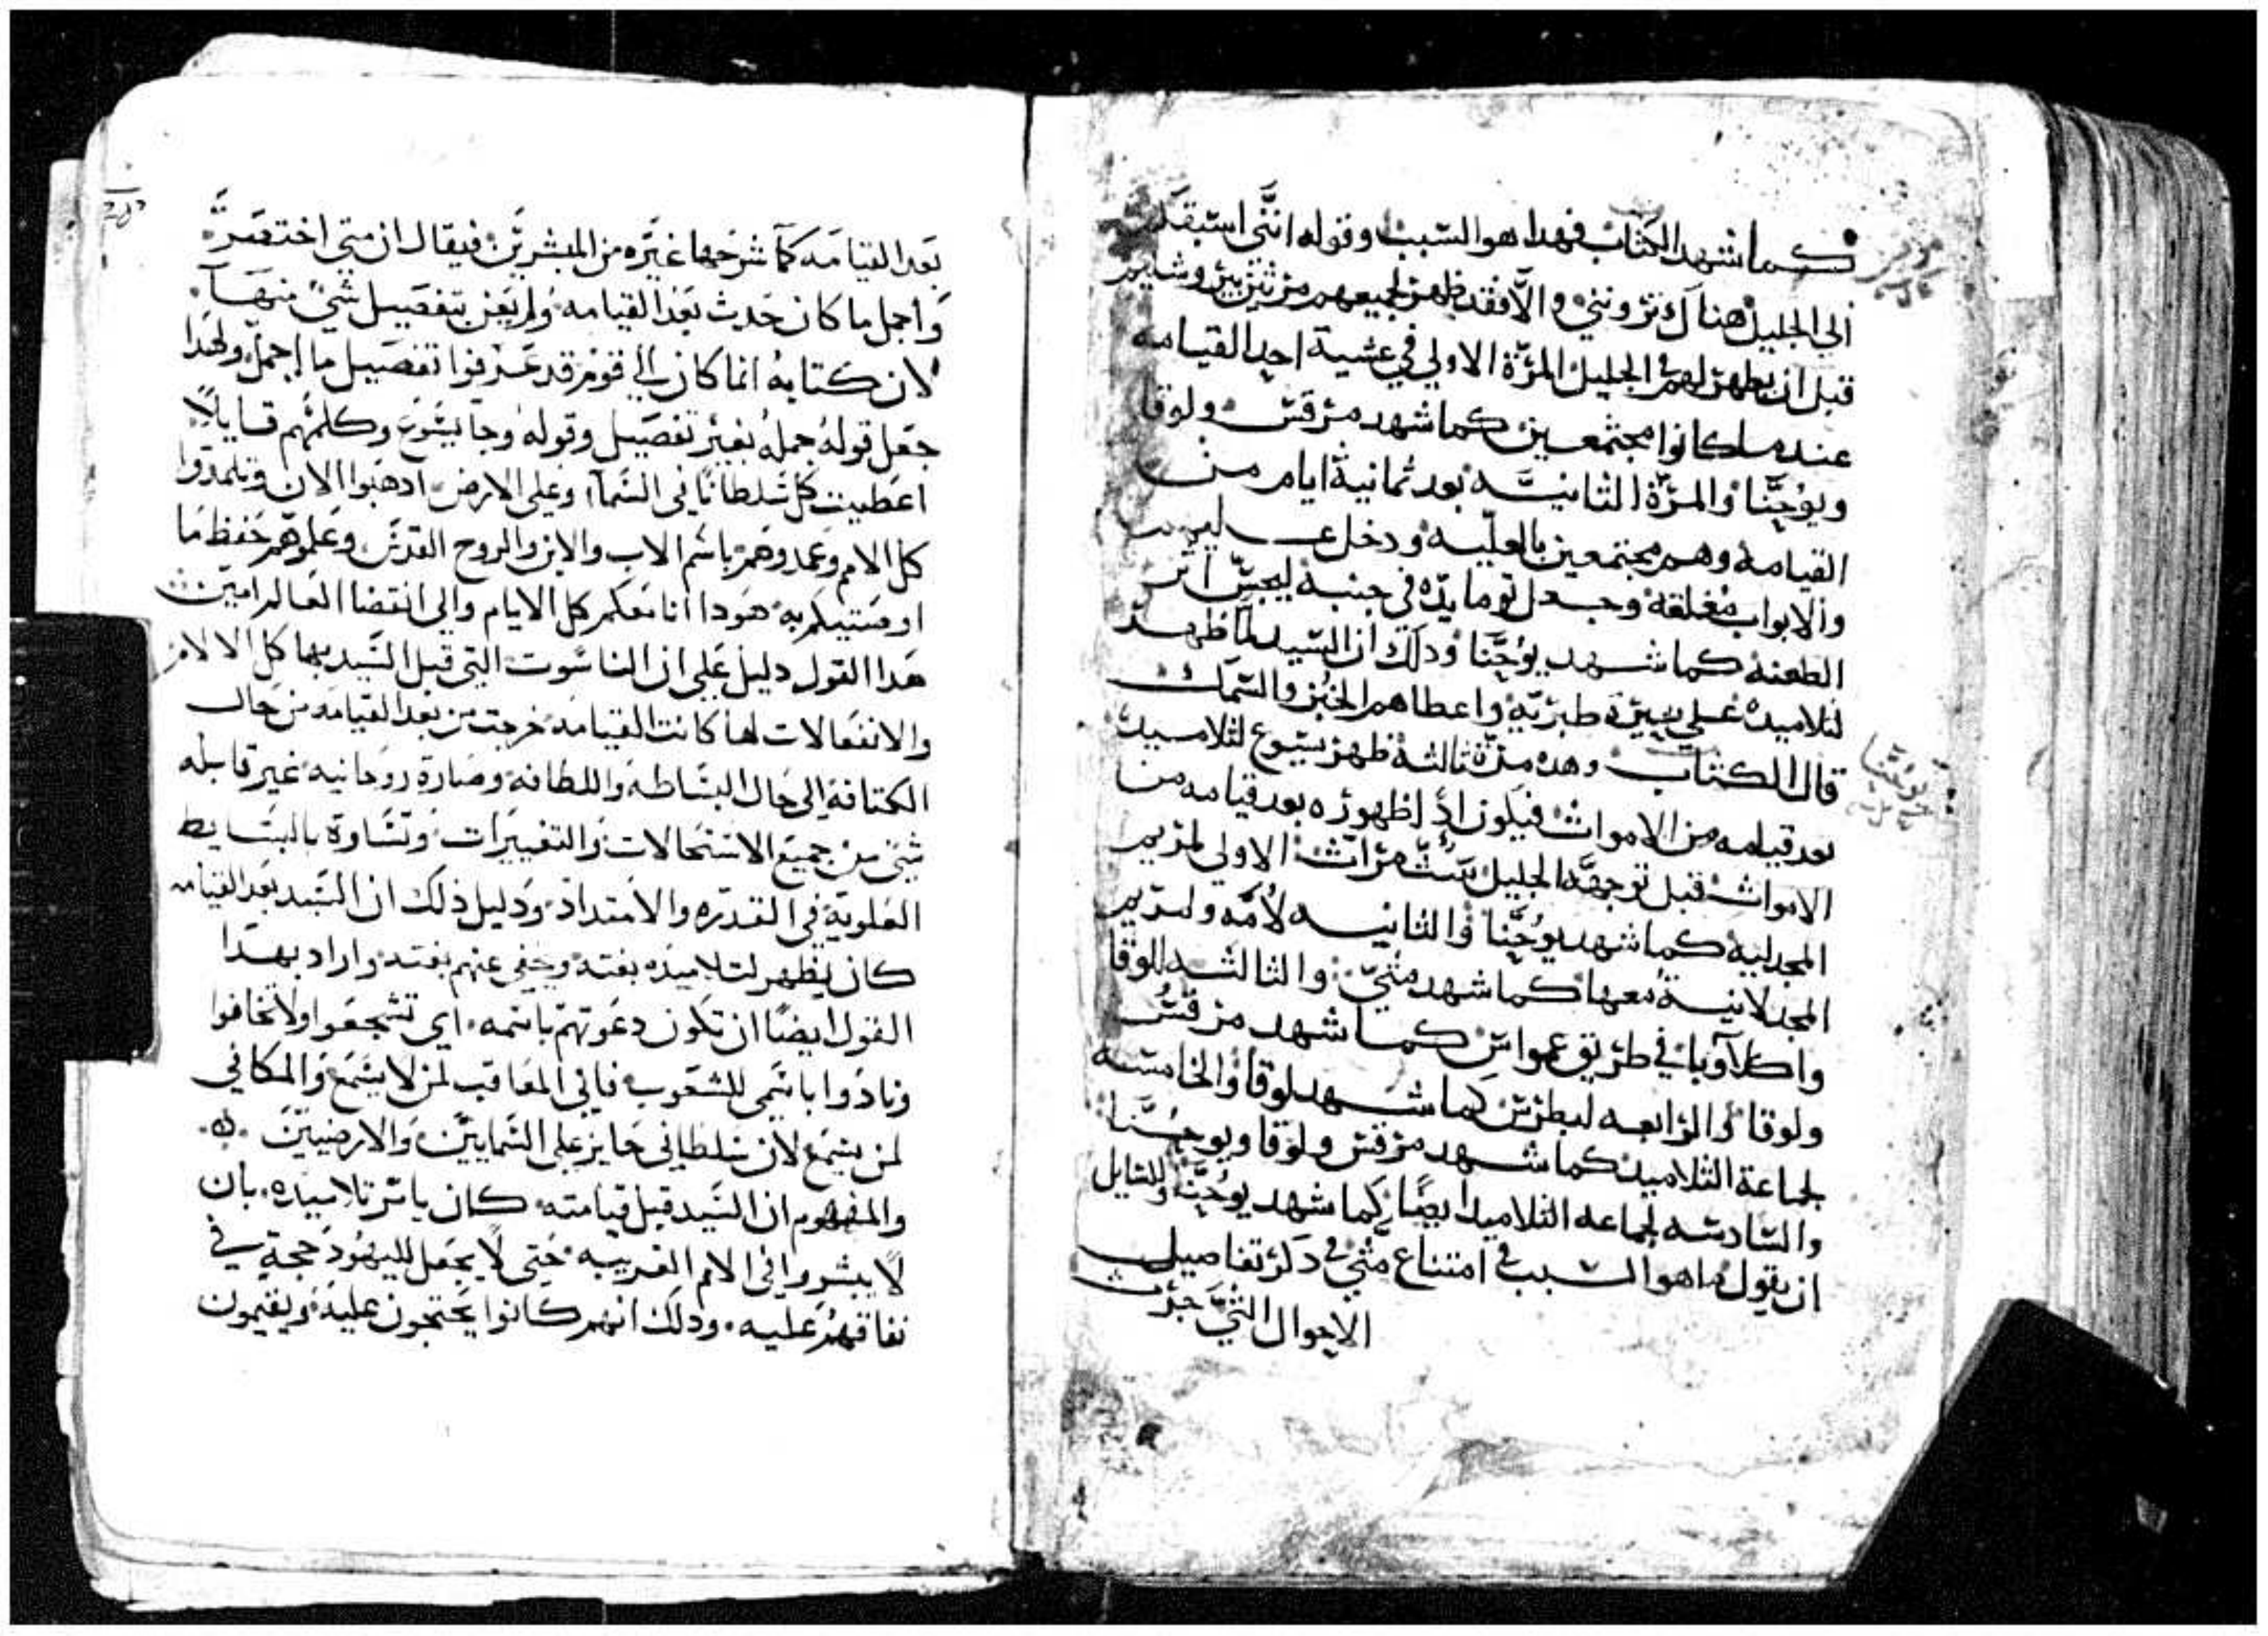 كما شهد الكتاب فهدا هو السبب وقوله انني اسبقكم
الي الجليل هناك تروننى والا فقد ظهر لجميعهم مرتين بيروشليم
قبل ان يظهر لهم فى الجليل المرة الاولي في عشية احد القيامه
عندما كانوا مجتمعين كما شهد مرقس ولوقا
ويوحنا والمرة الثانيه بعد ثمانية ايام من
القيامه وهم مجتمعين بالعليه ودخل عليهم
والابواب مغلقه وجعل توما يده في جنبه ليجس اثر
الطعنه كما شهد يوحنا ودلك ان السيد لما ظهر
لتلاميده علي بحيرة طبريه واعطاهم الخبز والسمك
قال الكتاب وهده مرة ثالثة ظهر يسوع لتلاميده
بعد قيامه من الاموات فيكون اذا ظهوره بعد قيامه من
الاموات قبل توجهه الجليل ست مرات الاولي لمريم
المجدليه كما شهد يوحنا والثانيه لامه ولمريم
المجدلانية معها كما شهد متي والثالثه للوقا
واكلاوبا في طريق عمواس كما شهد مرقس
ولوقا والرابعه لبطرس كما شهد لوقا والخامسه
لجماعة التلاميد كما شهد مرقس ولوقا ويوحنا
والسادسه لجماعه التلاميد ايضا كما شهد يوحنا وللسايل
ان يقول ما هو السبب فى امتناع متي فى دكر تفاصيل
الاحوال التي جرت
يوحنا
بعد القيامه كما شرحها غيره من المبشرين فيقال ان متي اختصر
واجمل ما كان حدث بعد القيامه ولم يعن بتفصيل شي منها
لان كتابه انما كان الي قوم قد عرفوا تفصيل ما اجمل ولهدا
جعل قوله جمله بغير تفصيل وقوله وجا يسوع وكلمهم قايلا
اعطيت كل سلطانا في السما وعلي الارض ادهبوا الان وتلمدوا
كل الامم وعمدوهم باسم الاب والابن والروح القدس وعلموهم حفظ ما
اوصيتكم به هودا انا معكم كل الايام والي انقضا العالم امين
هدا القول دليل علي ان الناسوت التي قبل السيد بها كل الالام
والانفعالات لما كانت القيامه خرجت من بعد القيامه من حال
الكتافة الي حال البساطه واللطافه وصارة روحانيه غير قابله
شي من جميع الاستحالات والتغييرات وتساوة بالبسايط
العلوية في القدره والامتداد ودليل ذلك ان السيد بعد القيامه
كان يظهر لتلاميذه بغته وخفي عنهم بغته واراد بهدا
القول ايضا ان تكون دعوتهم باسمه اي تشجعوا ولا تخافوا
ونادوا باسمي للشعوب فاني المعاقب لمن لا يسمع والمكافي
لمن يسمع لان سلطاني جايز علي السمايين والارضيين
والمفهوم ان السيد قبل قيامته كان يامر تلاميده بان
لا يبشروا في الامم الغريبه حتى لا يجعل لليهود حجة في
نفاقهم عليه ودلك انهم كانوا يحتجون عليه ويقيمون